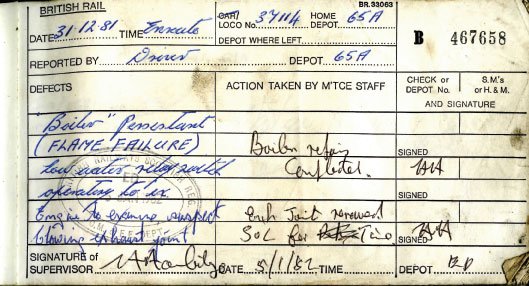 BRITISH RAIL
BR.33063
DATE 31-12-81 TIME Enroute
CAR/ LOCO No. 37114 HOME DEPOT 65A
DEPOT WHERE LEFT
B 467658
REPORTED BY Driver DEPOT 65A
DEFECTS
ACTION TAKEN BY M'TCE STAFF
CHECK or DEPOT No.
S.M's or H.& M.
AND SIGNATURE
"Boiler" Persistant
(FLAME FAILURE)
Boiler repair
SIGNED
low water relay switch
Completed.
operating to ex
Engine To examine suspect
Exh Joint renewed
SIGNED
blowing exhaust joint
SOC for
SIGNED
SIGNATURE OF SUPERVISOR
DATE 5/1/82 TIME
DEPOT ED